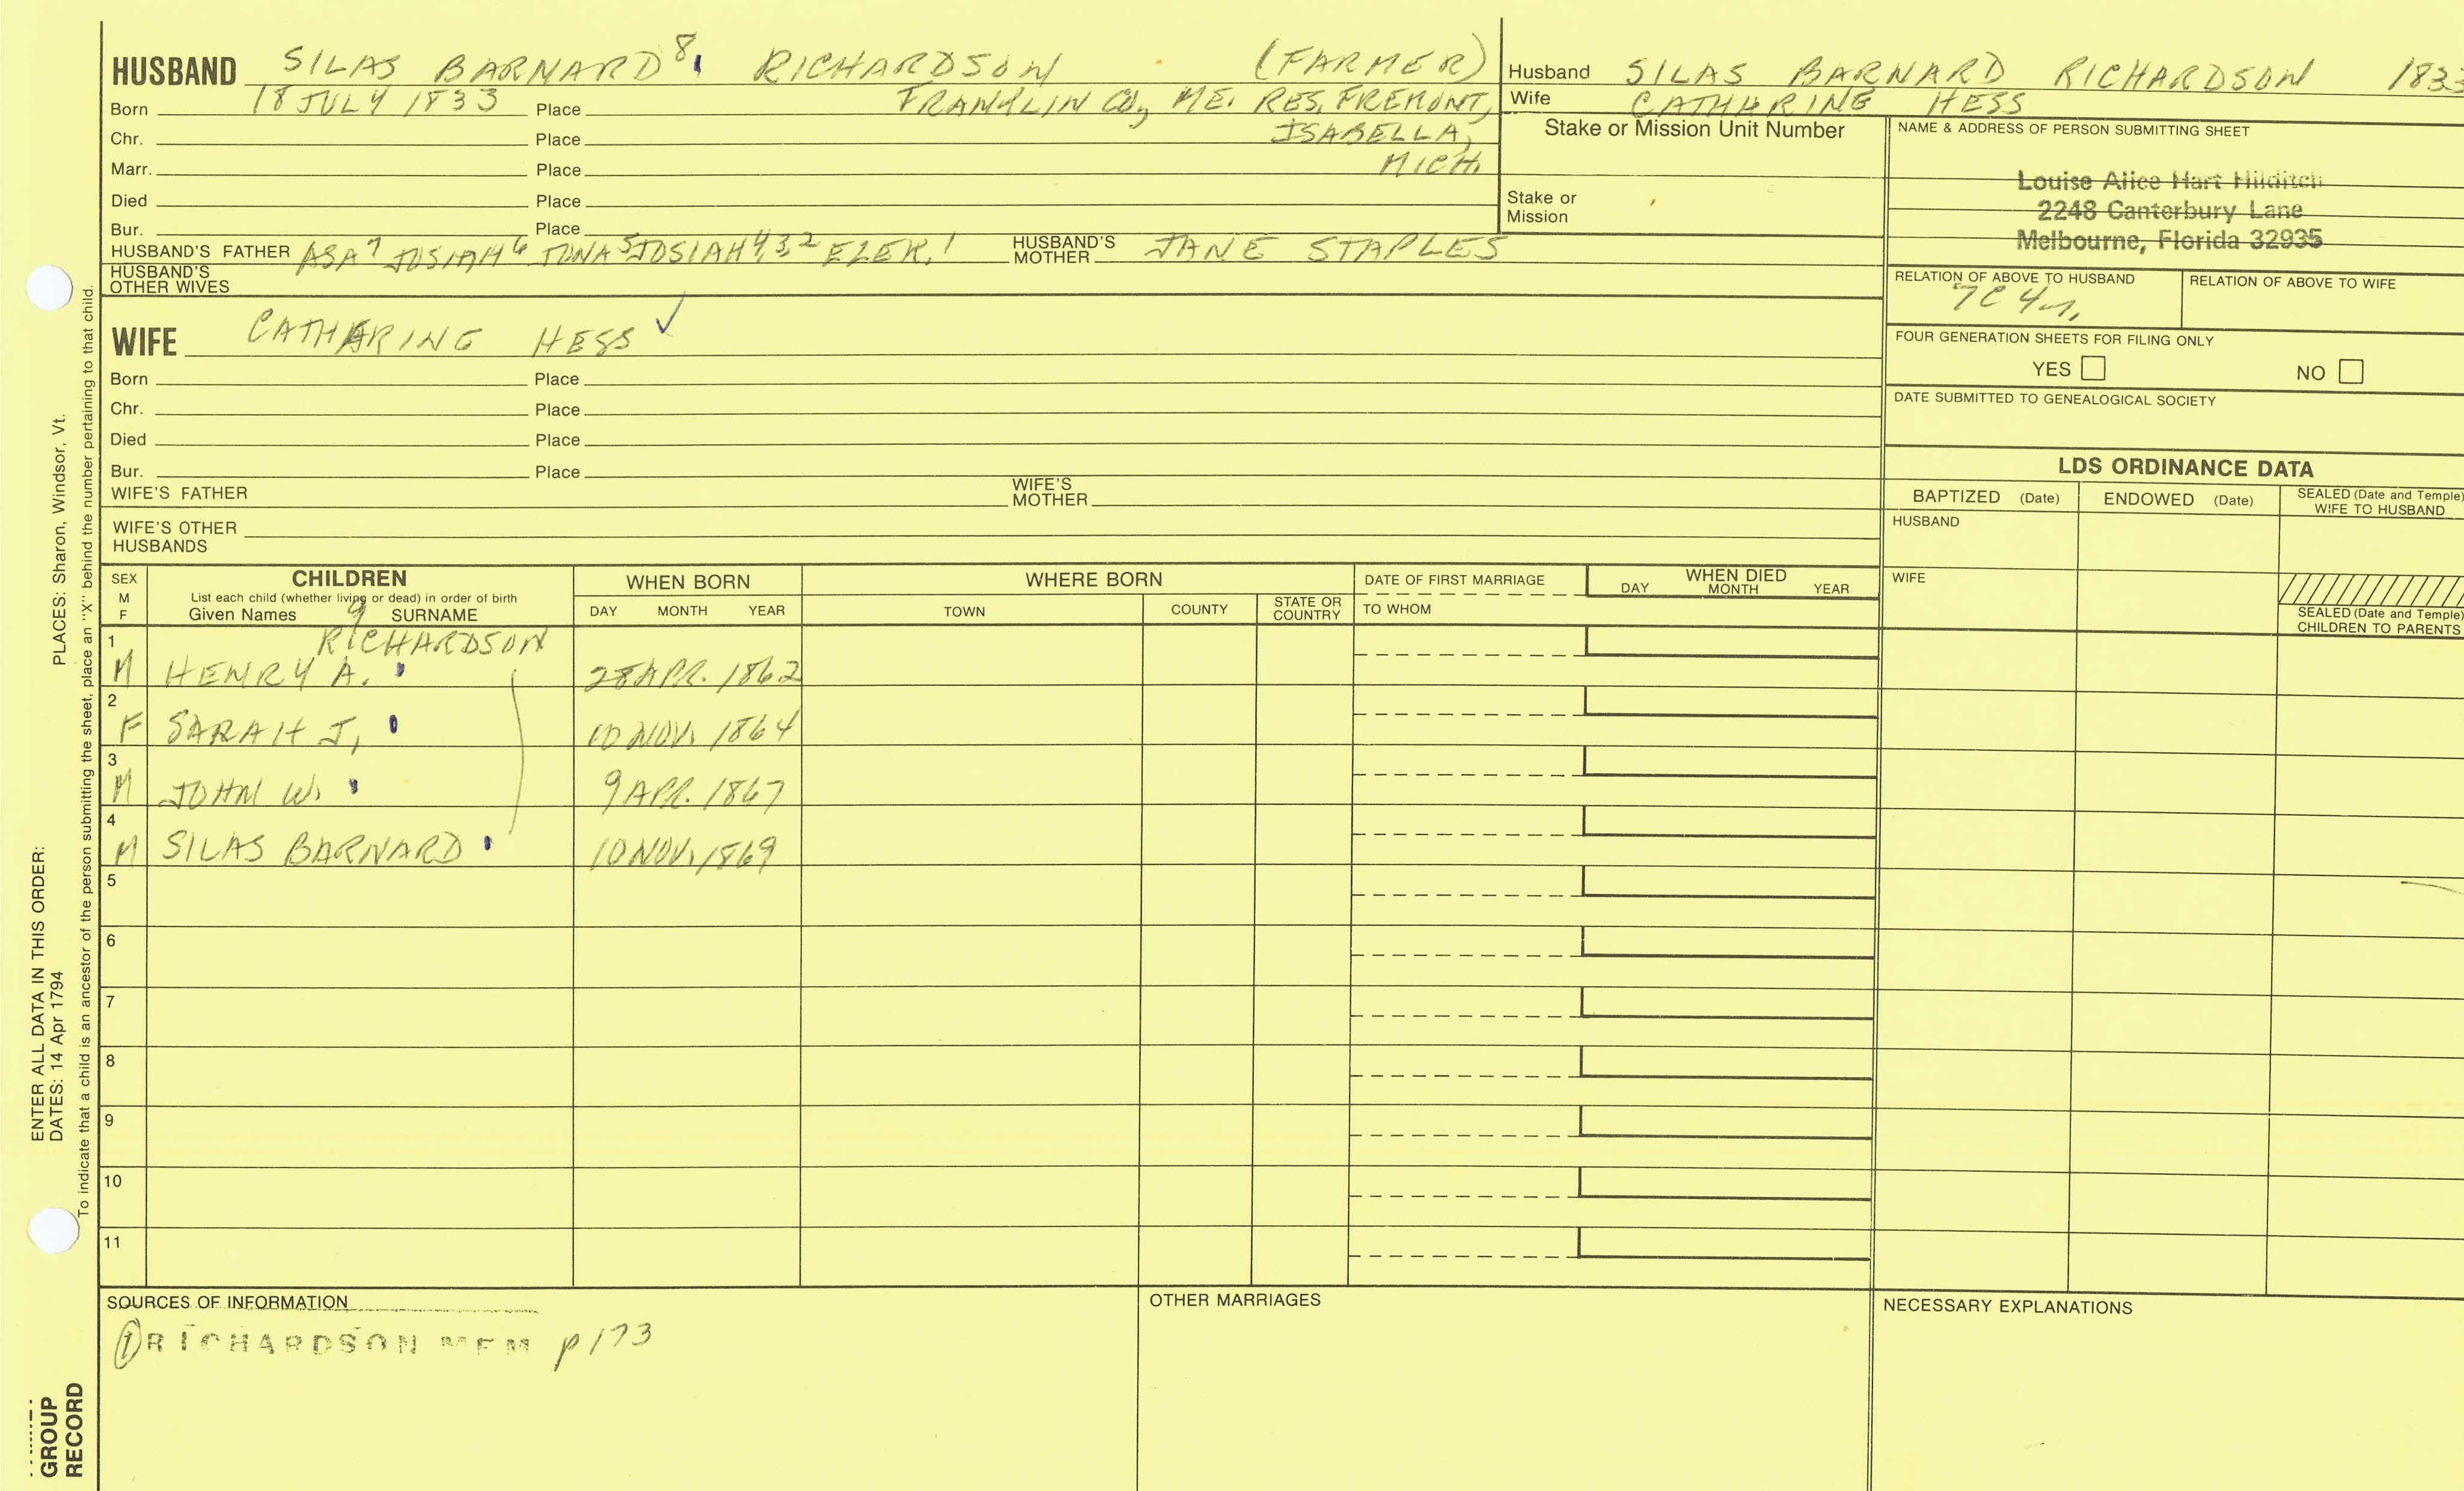 HUSBAND SILAS BARNARD 8 RICHARDSON (FARMER)
Born 18 JULY 1833 Place FRANKLIN CO, ME. RES. FREMONT,
Chr. Place ISABELLA,
Marr. Place MICH.
Died Place
Bur. Place
HUSBAND'S FATHER ASA 7 JOSIAH 6 JONA 5 JOSIAH 4,3,2 EZEK. 1 HUSBAND'S MOTHER JANE STAPLES
HUSBAND'S OTHER WIVES
WIFE CATHARINE HESS ✓
Born Place
Chr. Place
Died Place
Bur. Place
WIFE'S FATHER WIFE'S MOTHER
WIFE'S OTHER HUSBANDS
Husband SILAS BARNARD RICHARDSON 1833
Wife CATHARINE HESS
Stake or Mission Unit Number
Stake or Mission
NAME & ADDRESS OF PERSON SUBMITTING SHEET
Louise Alice Hart Hilditch
2248 Canterbury Lane
Melbourne, Florida 32935
RELATION OF ABOVE TO HUSBAND RELATION OF ABOVE TO WIFE
7C 4r.
FOUR GENERATION SHEETS FOR FILING ONLY
YES NO
DATE SUBMITTED TO GENEALOGICAL SOCIETY
LDS ORDINANCE DATA
BAPTIZED (Date) ENDOWED (Date) SEALED (Date and Temple) WIFE TO HUSBAND
HUSBAND
WIFE
SEALED (Date and Temple) CHILDREN TO PARENTS
SEX M F CHILDREN WHEN BORN WHERE BORN DATE OF FIRST MARRIAGE WHEN DIED
List each child (whether living or dead) in order of birth
Given Names 9 SURNAME DAY MONTH YEAR TOWN COUNTY STATE OR COUNTRY TO WHOM DAY MONTH YEAR
RICHARDSON
1 M HENRY A. 28 APR. 1862
2 F SARAH J. 10 NOV. 1864
3 M JOHN W. 9 APR. 1867
4 M SILAS BARNARD 10 NOV. 1869
5
6
7
8
9
10
11
SOURCES OF INFORMATION OTHER MARRIAGES NECESSARY EXPLANATIONS
① RICHARDSON MEM p173
ENTER ALL DATA IN THIS ORDER:
DATES: 14 Apr 1794 PLACES: Sharon, Windsor, Vt.
To indicate that a child is an ancestor of the person submitting the sheet, place an "X" behind the number pertaining to that child.
GROUP
RECORD